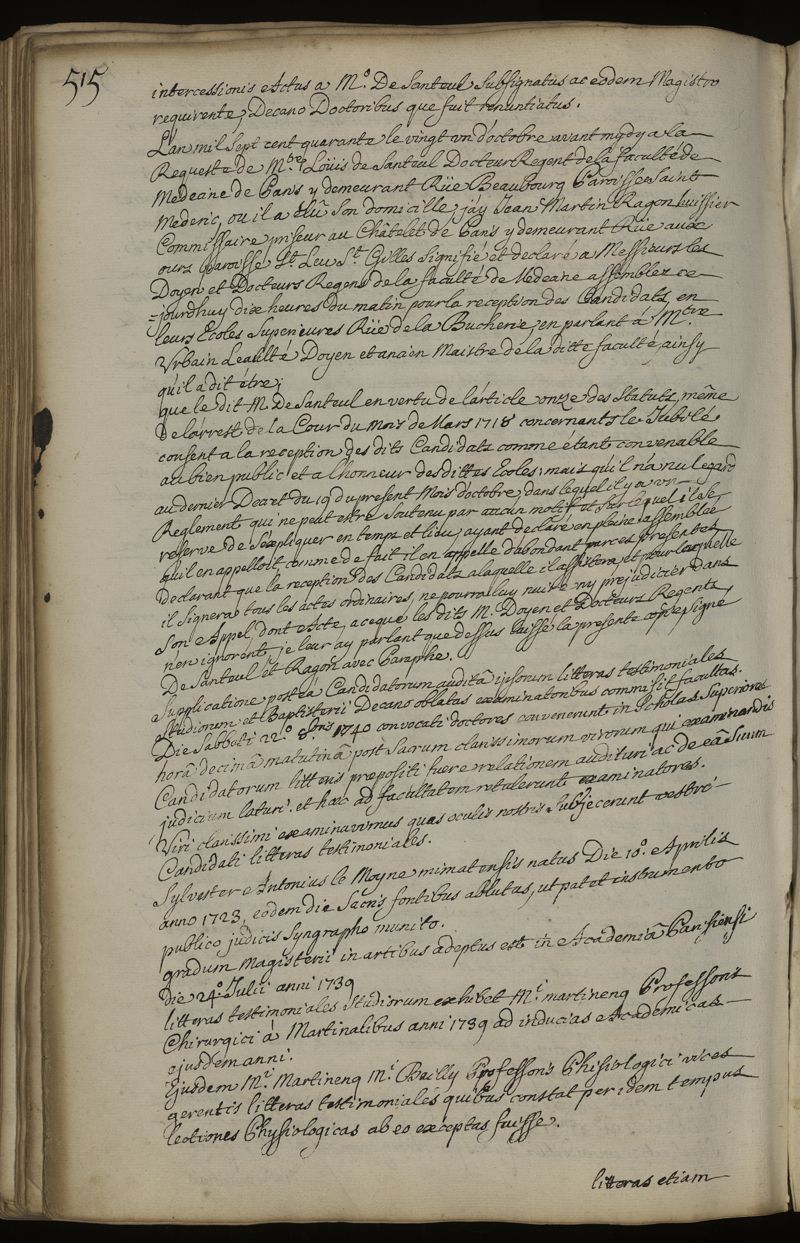 515
intercessionis Actus a M.º De Santeul Subsignatus ac eodem Magistro
requirente, Decano Doctoribus que fuit renuntiatus.
L'an mil Sept cent quarante le vingt un d'octobre avant mydy a la
Requeste de M.tre Loüis de Santeul Docteur Regent de la faculté de
Medecine de Paris y demeurant Rüe Beaubourg Paroisse Saint
Mederic, ou il a elû son domicille, j'ay Jean Martin Ragon huissier
Commissaire priseur au Châtelet de Paris y demeurant Rüe aux
ours paroisse St. Leu St. Gilles Signifié et declaré a Messieurs les
Doyen et Docteurs Regens de la faculté de Medecine assemblez ce
=jourdhuy dix heures du matin pour la reception des Candidats, en
leurs Ecoles Superieures Rüe de la Bucherie, en parlant à M.tre
Urbain Leaulté Doyen et ancien Maistre de la ditte faculté, ainsy
qu'il a dit être;
que le dit M. De Santeul en vertu de l'article onze des Statuts, même
De l'arrest de la Cour du Mois de Mars 1718 concernants le Jubilé
consent a la reception des dits Candidats comme étants convenable
au bien public et a l'honneur des dittes Ecoles; mais qu'il n'a nul egard
au dernier Decret du 19 du present Mois d'octobre, dans lequel il y a un
Reglement qui ne peut estre Soutenu par aucun motif et Sur lequel il se
reserve de S'expliquer en temps et lieu; ayant declaré en pleine assemblée
qu'il en appelloit comme de fait il en appelle d'abondant par ces presentes
Declarant que la reception des Candidats a laquelle il assistera et pour laquelle
il Signera tous les actes ordinaires, ne pourra luy nuire ny prejudicier dans
Son Appel, dont Acte, a ce que les dits M. Doyen et Docteurs Regents
n'en ignorent, je leur ay parlant que dessus laissé la presente copie signé
De Santeul et Ragon avec Paraphe.
Supplicatione posteà Candidatorum auditâ ipsorum litteras testimoniales
Studiorum et Baptisterii Decano oblatas examinatoribus commisit facultas.
Die Sabbati 22.º 8bris 1740 convocati doctores convenerunt in Scholas Superiores
horâ decimâ matutinâ post Sacrum clarissimorum virorum qui examinandis
Candidatorum litteris præpositi fuere relationem audituri ac de eâ Suum
judicium laturi. et hæc ad facultatem retulerunt examinatores.
Viri clarissimi examinavimus quas oculis nostris Subjecerunt vestri
Candidati litteras testimoniales.
Sylvester Antonius le Moyne mimatensis natus Die 10.º Aprilis
anno 1723, eodem die Sacris fontibus ablutus, ut patet instrumento
publico judicis Syngrapho munito.
gradum Magisterii in artibus adeptus est in Academiâ Parisiensi
die 24.º Julii anni 1739
litteras testimoniales Studiorum exhibet Mi. martinenq Professoris
Chirurgici à Martinalibus anni 1739 ad inducias Academicas
ejusdem anni.
Ejusdem Mi. Martinenq Mi. Bailly Professoris Phisiologici vices
gerentis litteras testimoniales quibus constat per idem tempus
lectiones Physiologicas ab eo exceptas fuisse.
litteras etiam